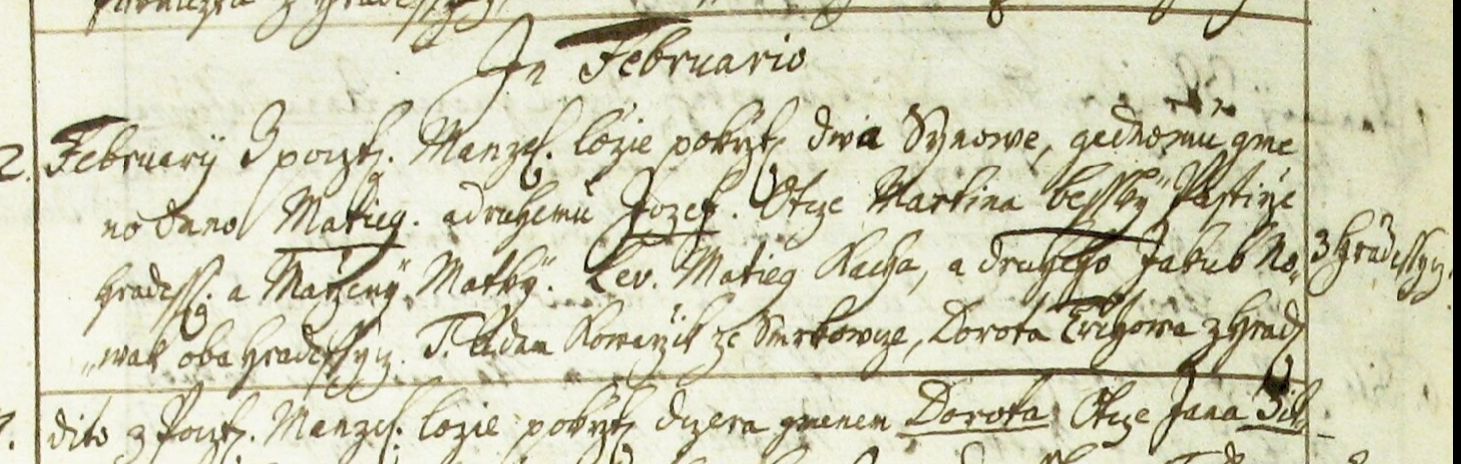 In Februario
2. Februarÿ z pocztj. Manzel. lozie pokrztj dwa Synowe, gednomu gme
no dano Matieg. a druhemu Jozef. Otcze Martina Pastirze
hradess. a Marzeny Matky. Lev. Matieg Kacha, a druheho Jakub No„
„wak oba hradessczy. T. Adam Kowarzik ze Smrkowcze, Dorota z hrad
z hradessczy.
dito z Pocztj. Manzel. lozie pokrztj dczera gmenem Dorota Otcze Jana